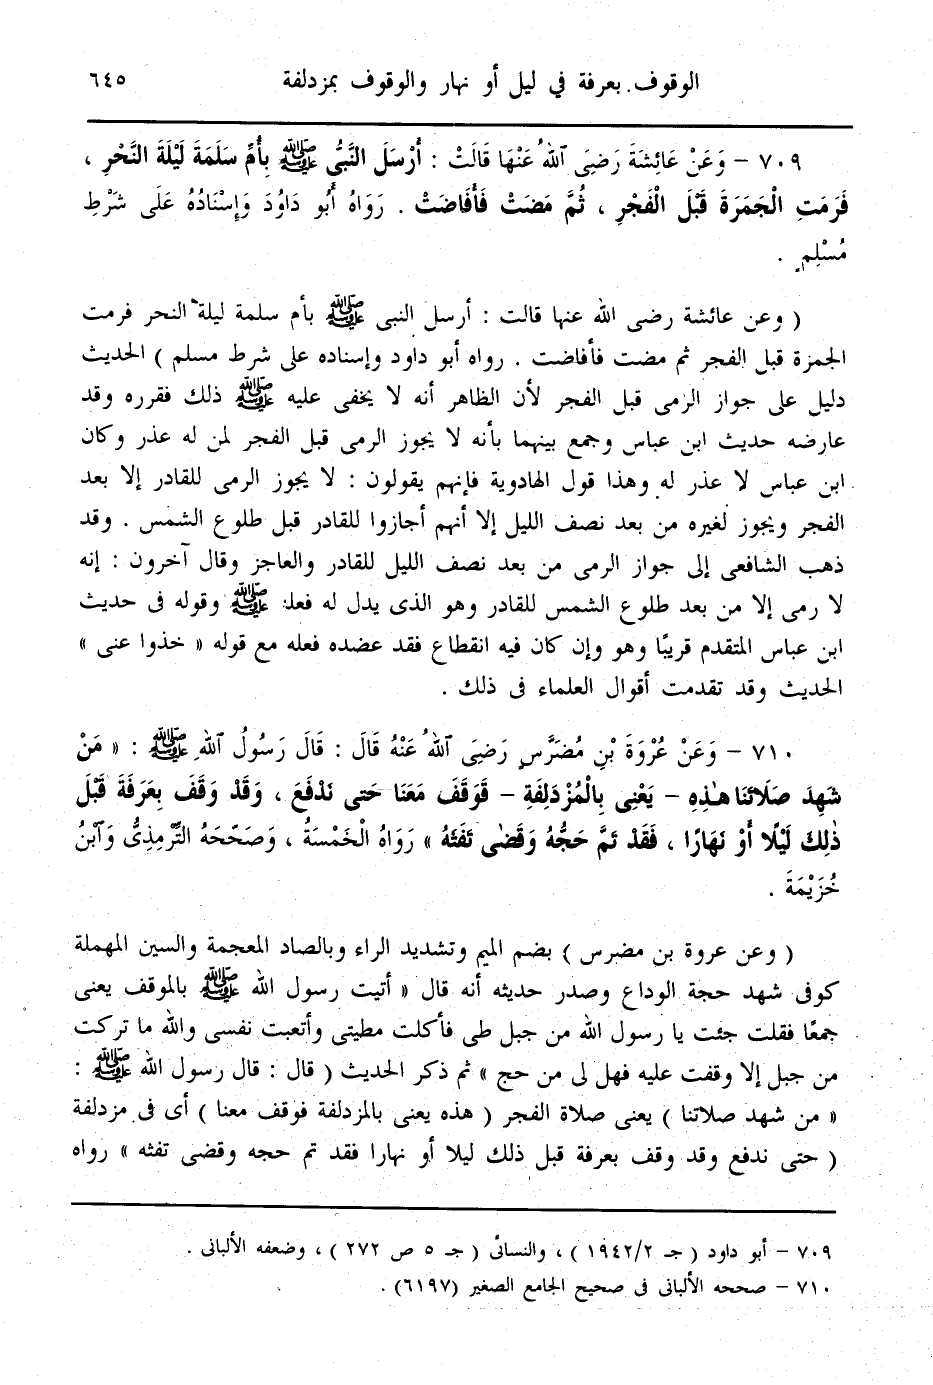 الوقوف بعرفة في ليل أو نهار والوقوف بمزدلفة ٦٤٥
٧٠٩ – وَعَنْ عَائِشَةَ رَضِىَ ٱللهُ عَنْهَا قَالَتْ : أَرْسَلَ النَّبِىُّ ﷺ بِأُمِّ سَلَمَةَ لَيْلَةَ النَّحْرِ ،
فَرَمَتِ الْجَمَرَةَ قَبْلَ الْفَجْرِ ، ثُمَّ مَضَتْ فَأَفَاضَتْ . رَوَاهُ أَبُو دَاوُدَ وَإِسْنَادُهُ عَلَى شَرْطِ
مُسْلِمٍ .
( وعن عائشة رضى الله عنها قالت : أرسل النبى ﷺ بأم سلمة ليلة النحر فرمت
الجمزة قبل الفجر ثم مضت فأفاضت . رواه أبو داود وإسناده على شرط مسلم ) الحديث
دليل على جواز الرمى قبل الفجر لأن الظاهر أنه لا يخفى عليه ﷺ ذلك فقرره وقد
عارضه حديث ابن عباس وجمع بينهما بأنه لا يجوز الرمى قبل الفجر لمن له عذر وكان
ابن عباس لا عذر له وهذا قول الهادوية فإنهم يقولون : لا يجوز الرمى للقادر إلا بعد
الفجر ويجوز لغيره من بعد نصف الليل إلا أنهم أجازوا للقادر قبل طلوع الشمس . وقد
ذهب الشافعى إلى جواز الرمى من بعد نصف الليل للقادر والعاجز وقال آخرون : إنه
لا رمى إلا من بعد طلوع الشمس للقادر وهو الذى يدل له فعله ﷺ وقوله فى حديث
ابن عباس المتقدم قريبًا وهو وإن كان فيه انقطاع فقد عضده فعله مع قوله « خذوا عنى »
الحديث وقد تقدمت أقوال العلماء فى ذلك .
٧١٠ – وَعَنْ عُرْوَةَ بْنِ مُضَرَّسٍ رَضِىَ ٱللهُ عَنْهُ قَالَ : قَالَ رَسُولُ ٱللهِ ﷺ : « مَنْ
شَهِدَ صَلَاتَنَا هٰذِهِ – يَعْنِى بِالْمُزْدَلِفَةِ – فَوَقَفَ مَعَنَا حَتى نَدْفَعَ ، وَقَدْ وَقَفَ بِعَرَفَةَ قَبْلَ
ذٰلِكَ لَيْلًا أَوْ نَهَارًا ، فَقَدْ تَمَّ حَجُّهُ وَقَضٰى تَفَثَهُ » رَوَاهُ الْخَمْسَةُ ، وَصَحّحَهُ التِّرْمِذِىُّ وَٱبْنُ
خُزَيْمَةَ .
( وعن عروة بن مضرس ) بضم الميم وتشديد الراء وبالصاد المعجمة والسين المهملة
كوفى شهد حجة الوداع وصدر حديثه أنه قال « أتيت رسول الله ﷺ بالموقف يعنى
جمعًا فقلت جئت يا رسول الله من جبل طى فأكلت مطيتى وأتعبت نفسى والله ما تركت
من جبل إلا وقفت عليه فهل لى من حج » ثم ذكر الحديث ( قال : قال رسول الله ﷺ :
« من شهد صلاتنا ) يعنى صلاة الفجر ( هذه يعنى بالمزدلفة فوقف معنا ) أى فى مزدلفة
( حتى ندفع وقد وقف بعرفة قبل ذلك ليلا أو نهارا فقد تم حجه وقضى تفثه » رواه
٧٠٩ – أبو داود ( جـ ١٩٤٢/٢ ) ، والنسائى ( جـ ٥ ص ٢٧٢ ) ، وضعفه الألبانى .
٧١٠ – صححه الألبانى فى صحيح الجامع الصغير (٦١٩٧) .